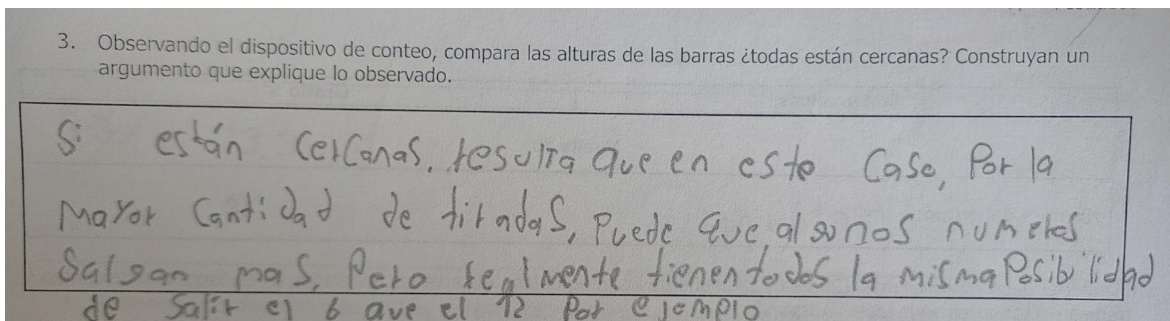 3. Observando el dispositivo de conteo, compara las alturas de las barras ¿todas están cercanas? Construyan un
argumento que explique lo observado.
Si están cercanas, resulta que en este caso, Por la
mayor cantidad de tiradas, Puede que algunos numeros
salgan mas, Pero realmente tienen todos la misma Posibilidad
de salir el 6 que el 12 Por ejemplo